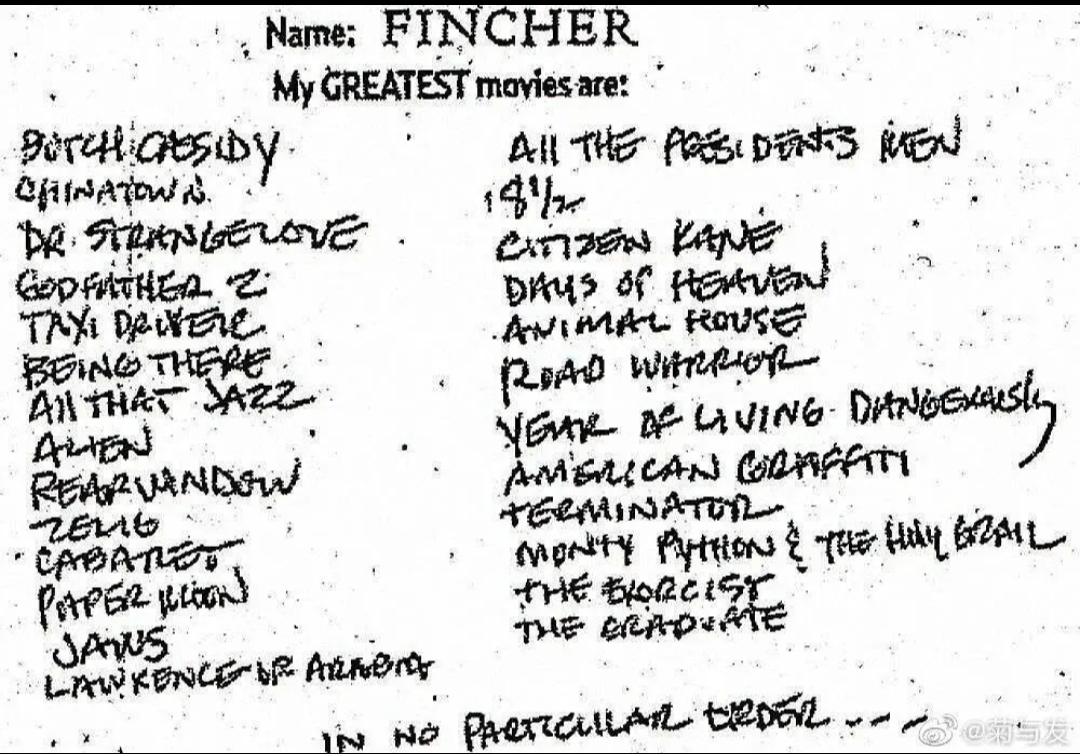 Name: FINCHER
My GREATEST movies are:
BUTCH CASSIDY
CHINATOWN
DR. STRANGELOVE
GODFATHER 2
TAXI DRIVER
BEING THERE
All THAT JAZZ
ALIEN
REAR WINDOW
ZELIG
CABARET
PAPER MOON
JAWS
LAWRENCE OF ARABIA
All THE PRESIDENTS MEN
8 1/2
CITIZEN KANE
DAYS OF HEAVEN
ANIMAL HOUSE
ROAD WARRIOR
YEAR OF LIVING DANGEROUSLY
AMERICAN GRAFFITI
TERMINATOR
MONTY PYTHON & THE HOLY GRAIL
THE EXORCIST
THE GRADUATE
IN NO PARTICULAR ORDER - - -
@菊与发